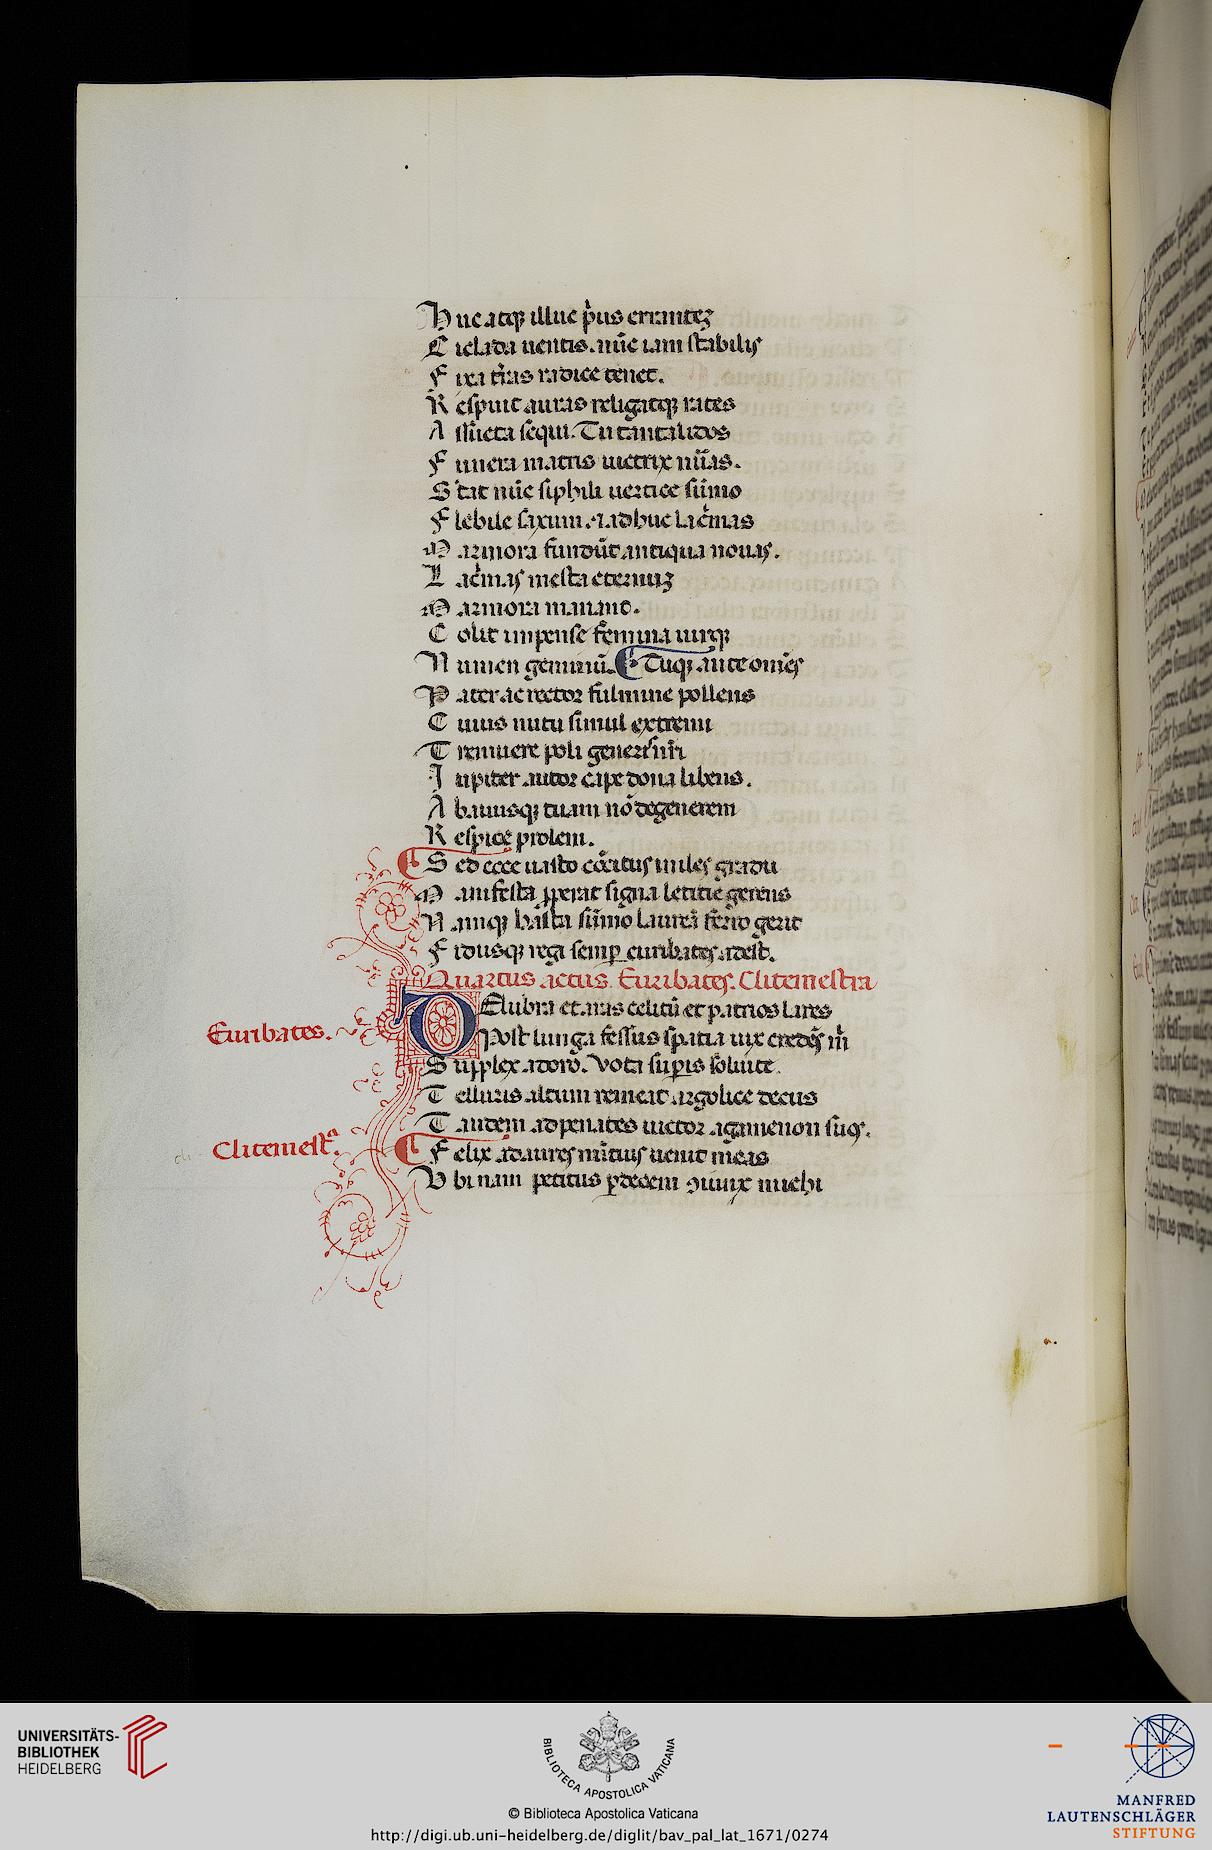 Huc atq; illuc p̃us errantez
Ciclada uentis. nũc iam stabilis
Fixa t̃ras radice tenet.
Respuit auras religatq; rates
Assueta sequi. Tu tantalidos
Funera matris uictrix nũas.
Stat nũc siphili uertice sũmo
Flebile saxum. 7 adhuc lac̃mas
Marmora fundũt antiqua nouas.
Lac̃mas mesta eternuz
Marmora manant.
Colit impense fẽmina uirq;
Numen geminũ. Tuq; ante om̃es
Pater ac rector fulmine pollens
Cuius nutu simul extremi
Tremuere poli generis nr̃i
Iupiter autor cape dona libens.
Abauusq; tuam nõ degenerem
Respice prolem.
Sed ecce uasto cõcitus miles gradu
Manifesta ꝓperat signa letitie gerens
Namq; hasta sũmo laureã ferro gerit
Fidusq; regi semp̱ euribates adest.
Quartus actus. Euribates. Clitemestra
DElubra et aras celitũ et patrios lares
Euribates.
Post lunga fessus spatia uix credẽs m̃
Supplex adoro. Vota sup̱is soluite.
Telluris altum remeat argolice decus
Tandem ad penates uictor agamenon suos.
Clitemestᵃ.
Felix ad aures nũtius uenit meas
Vbi nam petitus p̱ decem ꝯiunx michi
UNIVERSITÄTS-
BIBLIOTHEK
HEIDELBERG
BIBLIOTECA APOSTOLICA VATICANA
© Biblioteca Apostolica Vaticana
http://digi.ub.uni-heidelberg.de/diglit/bav_pal_lat_1671/0274
MANFRED
LAUTENSCHLÄGER
STIFTUNG